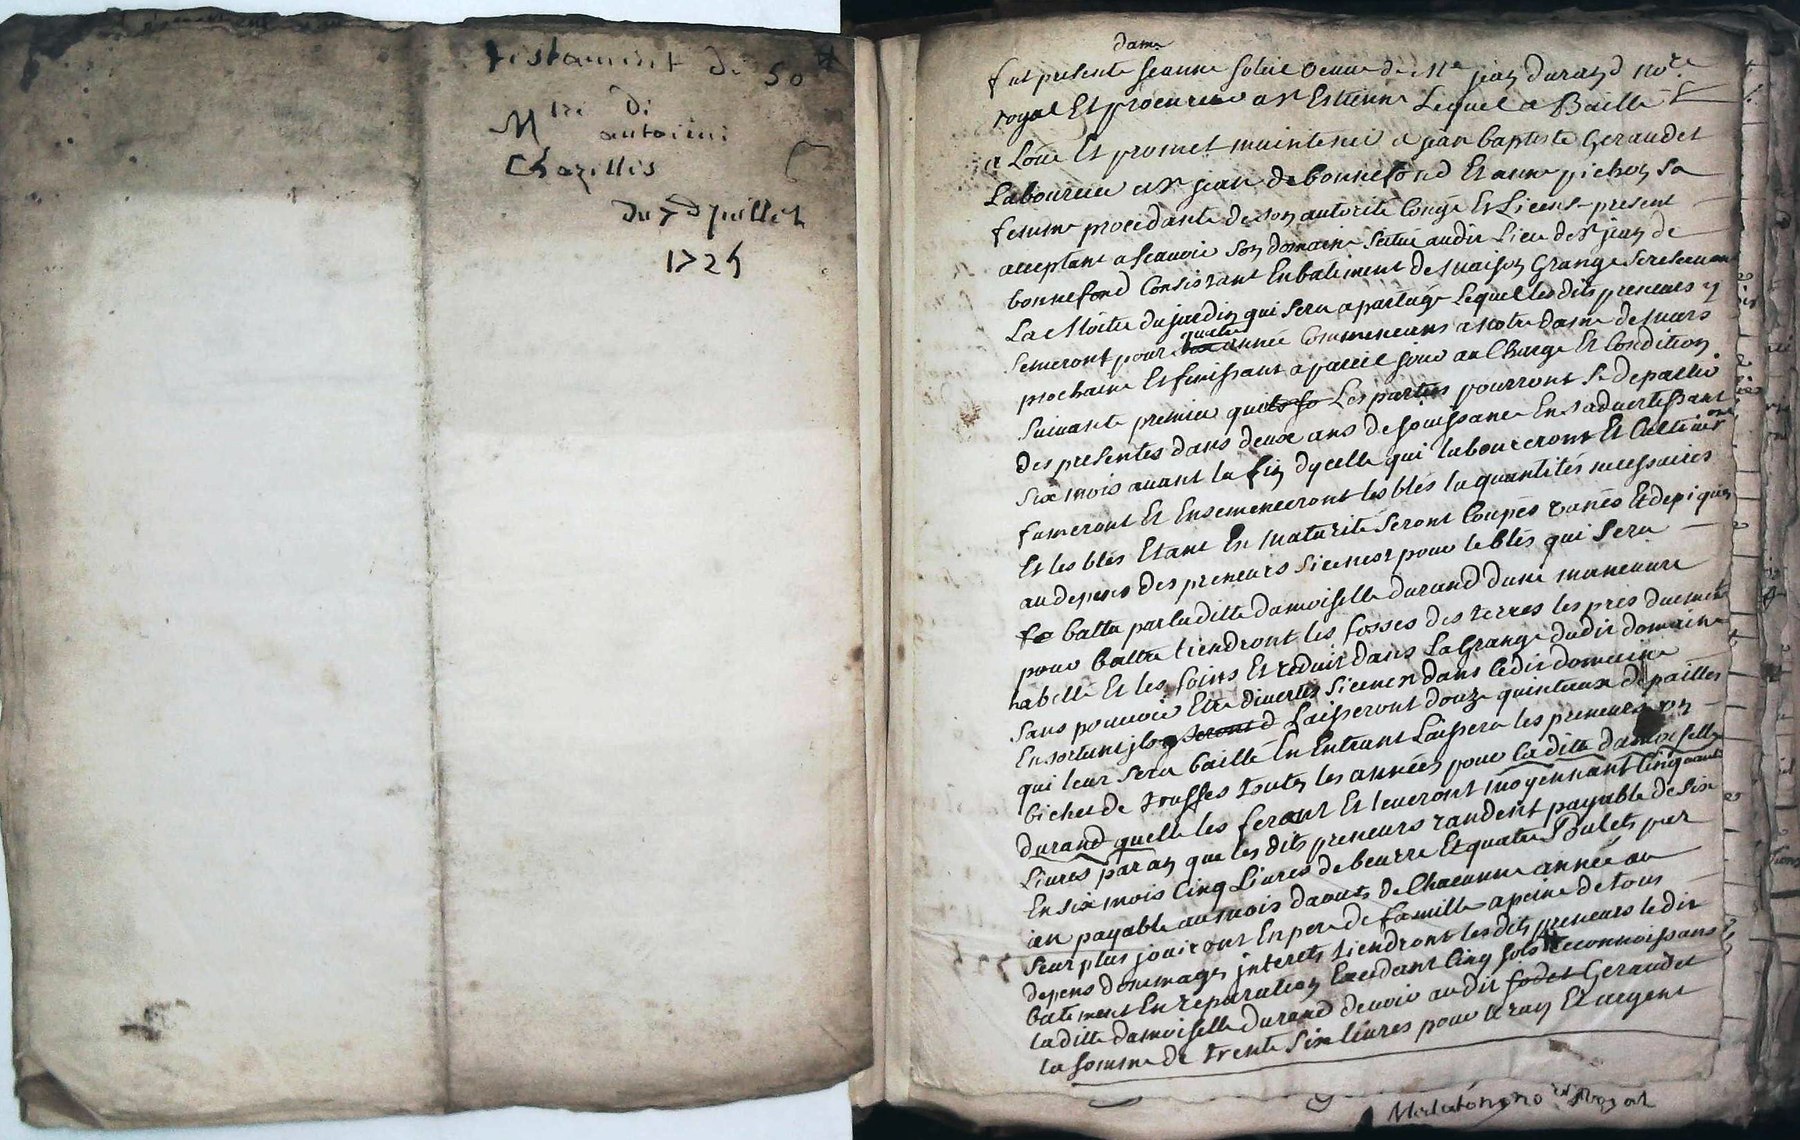 testament de 50 #
Mtre di
antoine
Chazelles
du 7 Juillet
1725
dame
fut presente jeanne soleil veuve de Me jean durand nore
royal Et procureur a St Estienne Lequel a Baillé Et
a Loue Et promet maintenir a jean baptiste Geraudet
Laboureur a St jean de bonnefond Et anne pichon sa
femme procedante de son autorité Congé Et License present
acceptant a scavoir son domaine scitue audit Lieu de St jean de
bonnefond Consistant En batiment de maison Grange se reservant
La Moitie du jardin qui sera apartagé Lequel les dits preneurs y
quatre
semeront pour année Commencant a notre dame de mars
prochaine Et finissant a pareil jour au Charge Et Condition
Suivante premier que les parties pourront se departir
des presentes dans deux ans de jouissance En s advertissant
six mois avant la fin dycelle qui laboureront Et Cultiveront
fumeront Et Ensemenceront les blés la quantités necessaires
Et les blés Etant En maturité Seront Coupés Et depiques
au depens des preneurs si ce nest pour le blés qui Sera
battu par la ditte damoiselle durand
pour battre tiendront les fosses des terres les prés duement
habillé Et les foins Et reduit dans La Grange dudit domaine
Sans pouvoir Etre divertis si ce nest dans ledit domaine
En sortant Laisseront douze quinteaux de pailles
qui leur sera baillé En Entrant Laissera les preneurs un
bichet de toutes les années pour la ditte damoiselle
durand quelle les feront Et leveront moyennant Cinquante
Livres par an que les dits preneurs randent payable de six
En six mois Cinq Livres de beurre Et quatre Poulets par
an payable au mois daouts de Chacunne année au
Seur plus jouiront En pere de famille a peine de tous
depens dommages interets tiendront les dits preneurs le dit
batiment En reparation Excedant Cinq sols reconnoissant
la ditte damoiselle durand devoir audit Geraudet
la somme de trente six livres pour Et argent